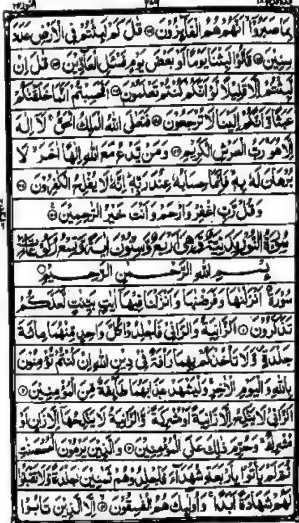 بِمَا صَبَرُوْۤا ۙ اَنَّهُمْ هُمُ الْفَآئِزُوْنَ ۝ قٰلَ كَمْ لَبِثْتُمْ فِی الْاَرْضِ عَدَدَ
سِنِیْنَ ۝ قَالُوْا لَبِثْنَا یَوْمًا اَوْ بَعْضَ یَوْمٍ فَسْـَٔلِ الْعَآدِّیْنَ ۝ قٰلَ اِنْ
لَّبِثْتُمْ اِلَّا قَلِیْلًا لَّوْ اَنَّكُمْ كُنْتُمْ تَعْلَمُوْنَ ۝ اَفَحَسِبْتُمْ اَنَّمَا خَلَقْنٰكُمْ
عَبَثًا وَّ اَنَّكُمْ اِلَیْنَا لَا تُرْجَعُوْنَ ۝ فَتَعٰلَی اللّٰهُ الْمَلِكُ الْحَقُّ ۚ لَاۤ اِلٰهَ
اِلَّا هُوَ ۚ رَبُّ الْعَرْشِ الْكَرِیْمِ ۝ وَ مَنْ یَّدْعُ مَعَ اللّٰهِ اِلٰهًا اٰخَرَ ۙ لَا
بُرْهَانَ لَهٗ بِهٖ ۙ فَاِنَّمَا حِسَابُهٗ عِنْدَ رَبِّهٖ ؕ اِنَّهٗ لَا یُفْلِحُ الْكٰفِرُوْنَ ۝
وَ قُلْ رَّبِّ اغْفِرْ وَ ارْحَمْ وَ اَنْتَ خَیْرُ الرّٰحِمِیْنَ ۝
سُوْرَةُ النُّوْرِ مَدَنِیَّةٌ وَّ هِیَ اَرْبَعٌ وَّ سِتُّوْنَ اٰیَةً وَّ تِسْعُ رُكُوْعَاتٍ
بِسْمِ اللّٰهِ الرَّحْمٰنِ الرَّحِیْمِ
سُوْرَةٌ اَنْزَلْنٰهَا وَ فَرَضْنٰهَا وَ اَنْزَلْنَا فِیْهَاۤ اٰیٰتٍۭ بَیِّنٰتٍ لَّعَلَّكُمْ
تَذَكَّرُوْنَ ۝ اَلزَّانِیَةُ وَ الزَّانِیْ فَاجْلِدُوْا كُلَّ وَاحِدٍ مِّنْهُمَا مِائَةَ
جَلْدَةٍ ۪ وَّ لَا تَاْخُذْكُمْ بِهِمَا رَاْفَةٌ فِیْ دِیْنِ اللّٰهِ اِنْ كُنْتُمْ تُؤْمِنُوْنَ
بِاللّٰهِ وَ الْیَوْمِ الْاٰخِرِ ۚ وَ لْیَشْهَدْ عَذَابَهُمَا طَآئِفَةٌ مِّنَ الْمُؤْمِنِیْنَ ۝
اَلزَّانِیْ لَا یَنْكِحُ اِلَّا زَانِیَةً اَوْ مُشْرِكَةً ؗ وَّ الزَّانِیَةُ لَا یَنْكِحُهَاۤ اِلَّا زَانٍ اَوْ
مُشْرِكٌ ۚ وَ حُرِّمَ ذٰلِكَ عَلَی الْمُؤْمِنِیْنَ ۝ وَ الَّذِیْنَ یَرْمُوْنَ الْمُحْصَنٰتِ
ثُمَّ لَمْ یَاْتُوْا بِاَرْبَعَةِ شُهَدَآءَ فَاجْلِدُوْهُمْ ثَمٰنِیْنَ جَلْدَةً وَّ لَا تَقْبَلُوْا
لَهُمْ شَهَادَةً اَبَدًا ۚ وَ اُولٰٓئِكَ هُمُ الْفٰسِقُوْنَ ۝ اِلَّا الَّذِیْنَ تَابُوْا